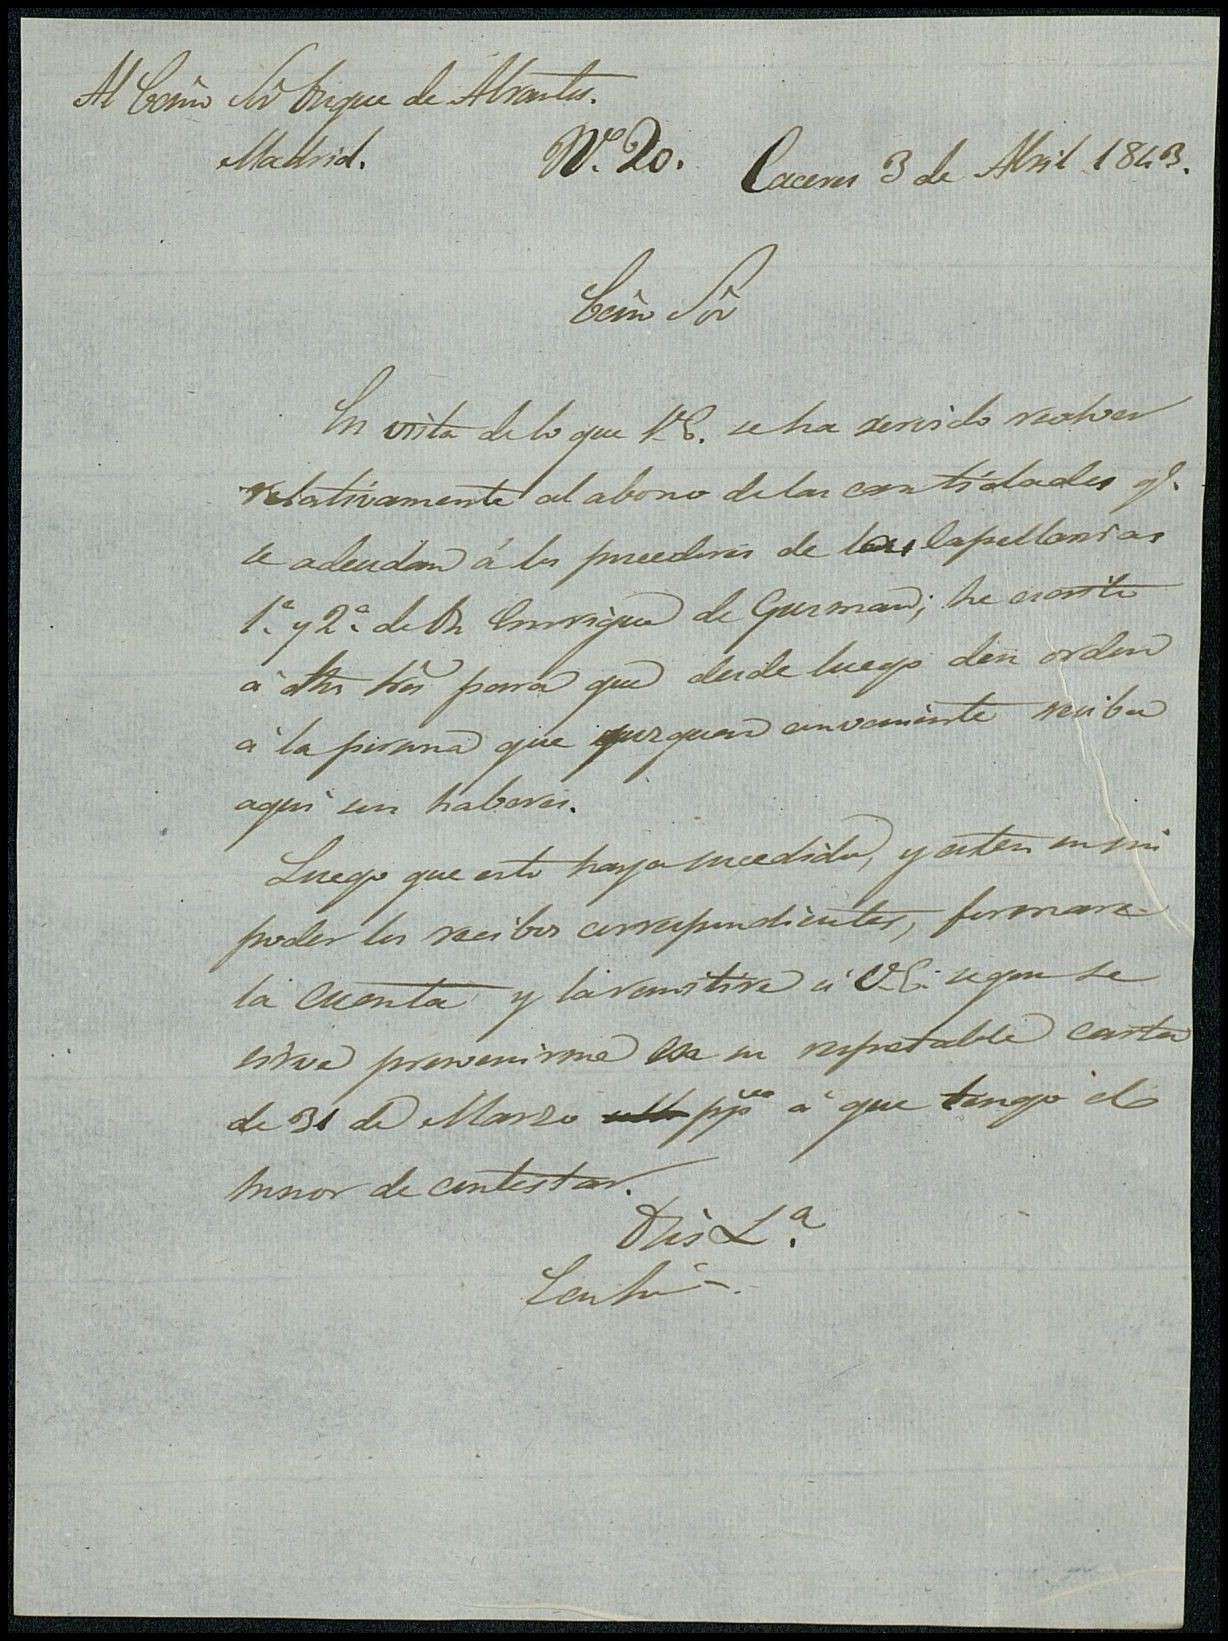 Al Ecmo Sór Duque de Abrantes.
Madrid.
Nº. 20.
Caceres 3 de Abril 1843.
Ecmo Sór
En vista de lo que V.E. se ha servido resolver
relativamente al abono de las cantidades q.e
se adeudan á los poseedores de las Capellanias
1.ª y 2.ª de Dn Enrrique de Guzman; he escrito
á dhos Sres para que desde luego den orden
á la persona que juzguen conveniente reciba
aqui sus haberes.
Luego que esto haya sucedido, y esten en mi
poder los recibos correspondientes, formaré
la cuenta y la remitiré á V.E. segun se
sirve prevenirme en su respetable carta
de 31 de Marzo pp.do á que tengo el
honor de contestar.
Dios L.ª